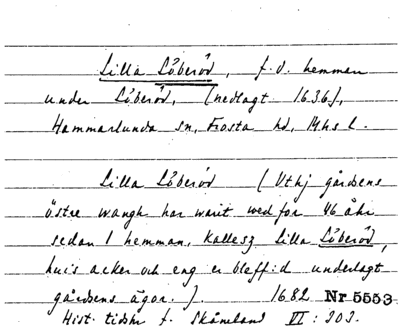 Lilla Löberöd, f.d. hemman
under Löberöd, (nedlagt 1636),
Hammarlunda sn, Frosta hd, Mhs l.
Lilla Löberöd (Uthj gårdsens
östre wangh har warit wed för 46 åhr
sedan 1 hemman, kallesz Lilla Löberöd,
huis acker och eng er bleff:d underlagt
gårdsens ägor.). 1682 Nr 5553
Hist. tidskr f. Skåneland VI: 303.